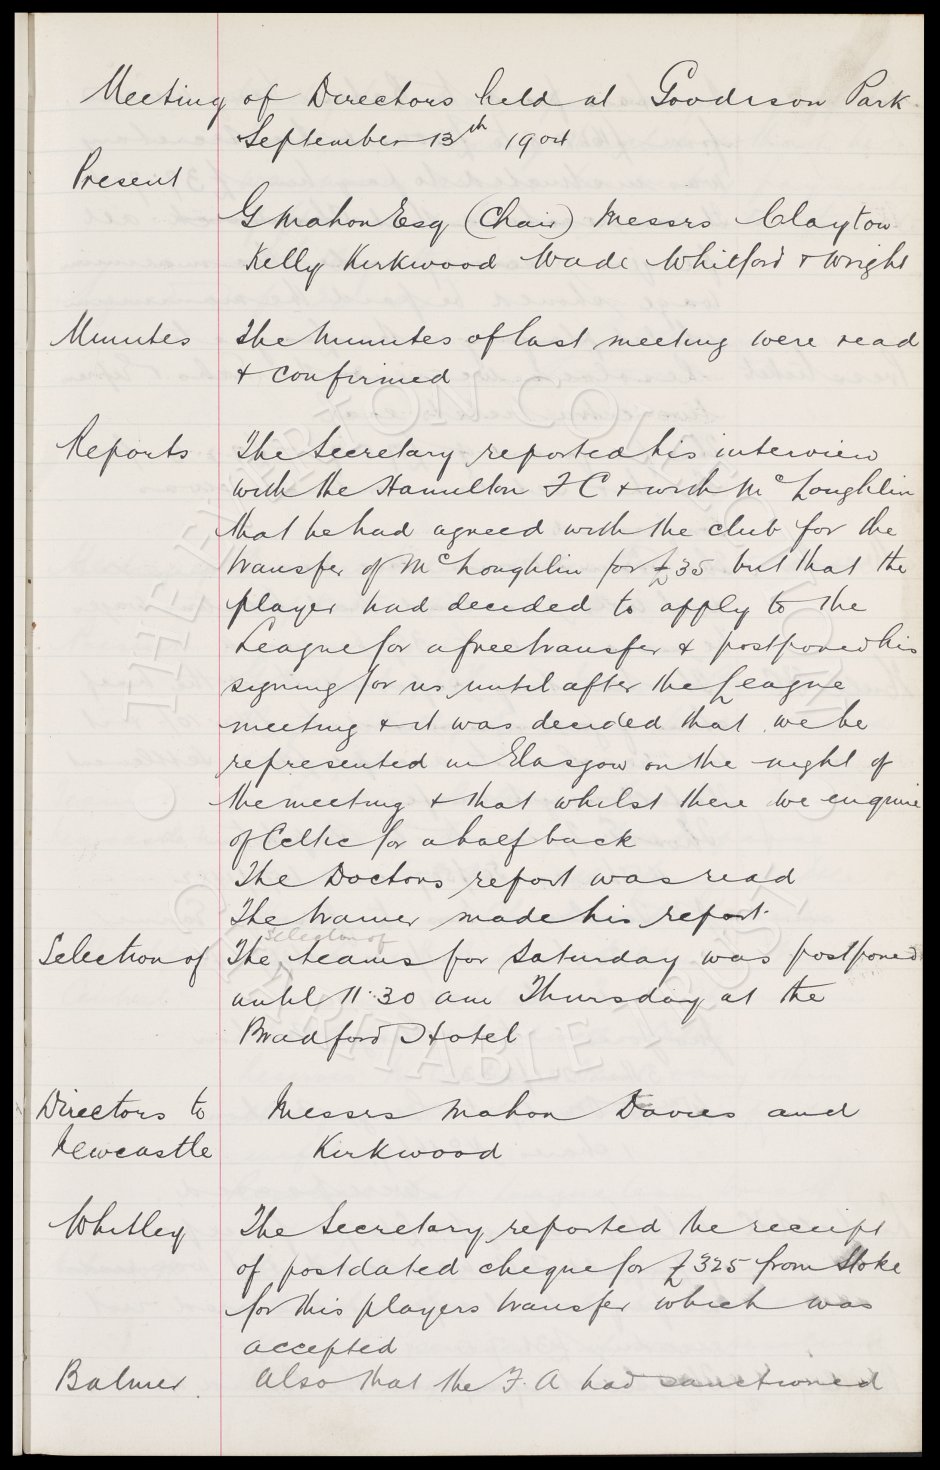 Meeting of Directors held at Goodison Park
September 13th 1904
Present
G Mahon Esq (Chair) Messrs Clayton
Kelly Kirkwood Wade Whitford & Wright
Minutes The Minutes of last meeting were read
& confirmed
Reports The Secretary reported his interview
with the Hamilton F C & with McLoughlin
that he had agreed with the club for the
transfer of McLoughlin for £35 but that the
player had decided to apply to the
League for a free transfer & postponed his
signing for us until after the League
meeting & it was decided that we be
represented in Glasgow on the night of
the meeting & that whilst there we enquire
of Celtic for a half back
The Doctors report was read
The trainer made his report.
selection of
Selection of The teams for Saturday was postponed
until 11.30 am Thursday at the
Bradford Hotel
Directors to Messrs Mahon Davies and
Newcastle Kirkwood
Whitley The Secretary reported the receipt
of postdated cheque for £325 from Stoke
for this players transfer which was
accepted
Balmer. Also that the F.A had sanctioned
THE EVERTON COLLECTION
CHARITABLE TRUST